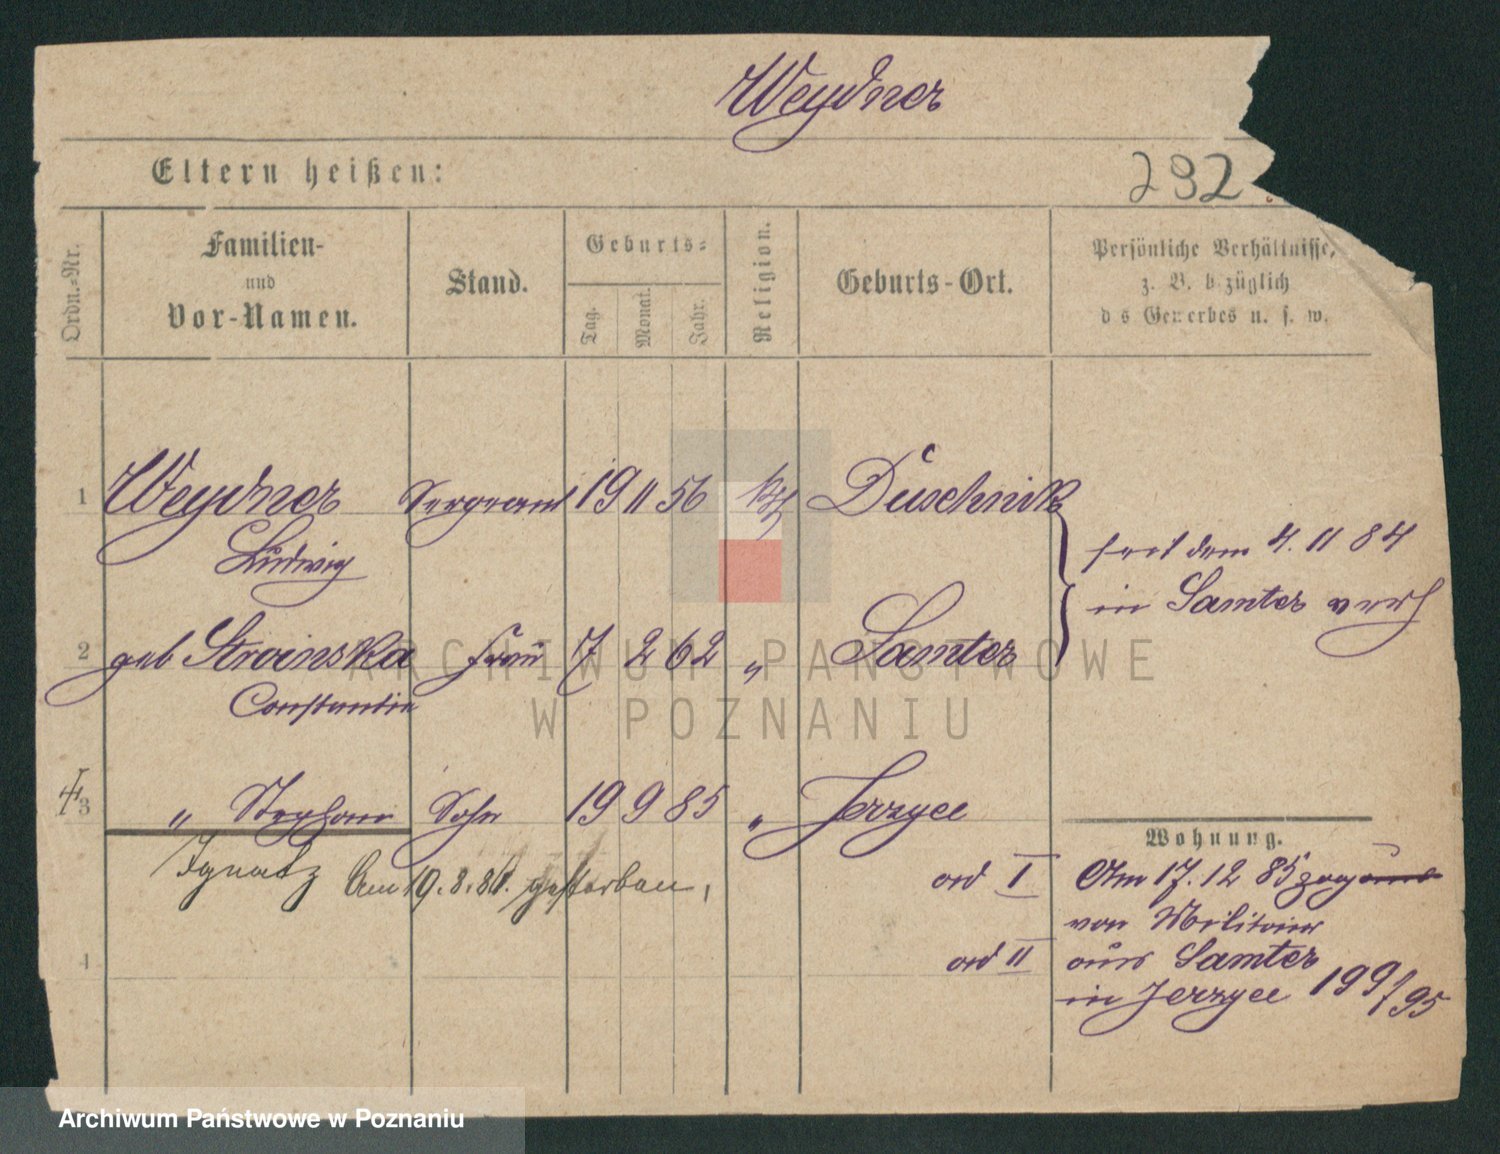 Weydner
Eltern heißen:
292
Ordn.-Nr.
Familien-
und
Vor-Namen.
Stand.
Geburts-
Tag.
Monat.
Jahr.
Religion.
Geburts-Ort.
Persönliche Verhältnisse,
z. B. bezüglich
des Gewerbes u. s. w.
1 Weydner Sergeant 19 11 56 kth Duschnik
Ludwig
seit dem 4. 11 84
in Samter verh
2 geb Stroinska Frau 7 2 62 " Samter
Constantia
3 " Stephan Sohn 19 9 85 " Jerzyce
Ignatz Am 19. 8. 86. gestorben,
Wohnung.
ord I Am 17. 12 85 zug
von Militair
ord II aus Samter
in Jerzyce 199/95
4
ARCHIWUM PAŃSTWOWE
W POZNANIU
Archiwum Państwowe w Poznaniu